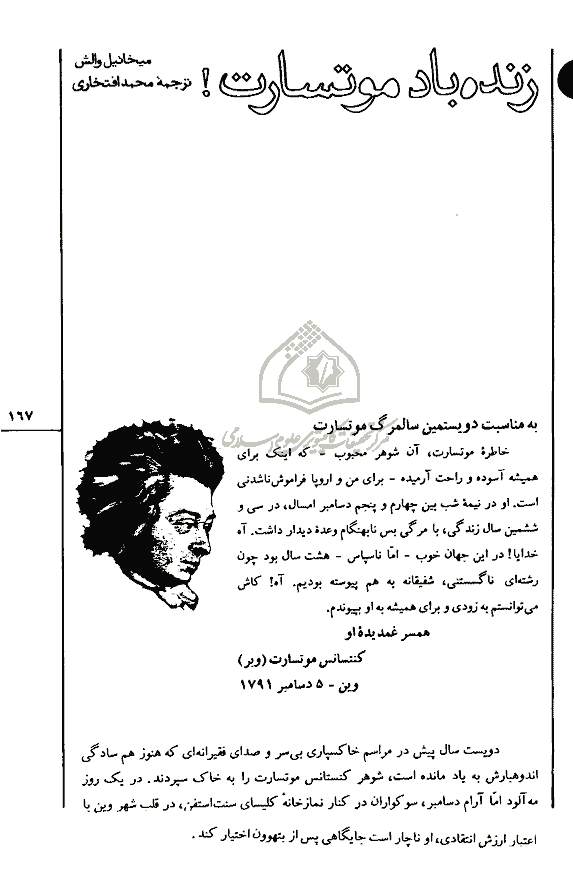 زنده‌باد موتسارت !
میخائیل والش
ترجمهٔ محمد افتخاری
۱۶۷
به مناسبت دویستمین سالمرگ موتسارت
خاطرهٔ موتسارت، آن شوهر محبوب - که اینک برای
همیشه آسوده و راحت آرمیده - برای من و اروپا فراموش‌ناشدنی
است. او در نیمهٔ شب بین چهارم و پنجم دسامبر امسال، در سی و
ششمین سال زندگی، با مرگی بس نابهنگام وعدهٔ دیدار داشت. آه
خدایا! در این جهان خوب - امّا ناسپاس - هشت سال بود چون
رشته‌ای ناگسستنی، شفیقانه به هم پیوسته بودیم. آه! کاش
می‌توانستم به زودی و برای همیشه به او بپیوندم.
همسر غمدیدهٔ او
کنتسانس موتسارت (وبر)
وین - ۵ دسامبر ۱۷۹۱
دویست سال پیش در مراسم خاکسپاری بی‌سر و صدای فقیرانه‌ای که هنوز هم سادگی
اندوهبارش به یاد مانده است، شوهر کنستانس موتسارت را به خاک سپردند. در یک روز
مه‌آلود امّا آرام دسامبر، سوکواران در کنار نمازخانهٔ کلیسای سنت‌استفن، در قلب شهر وین با
اعتبار ارزش انتقادی، او ناچار است جایگاهی پس از بتهوون اختیار کند.
مرکز تحقیقات کامپیوتری علوم اسلامی